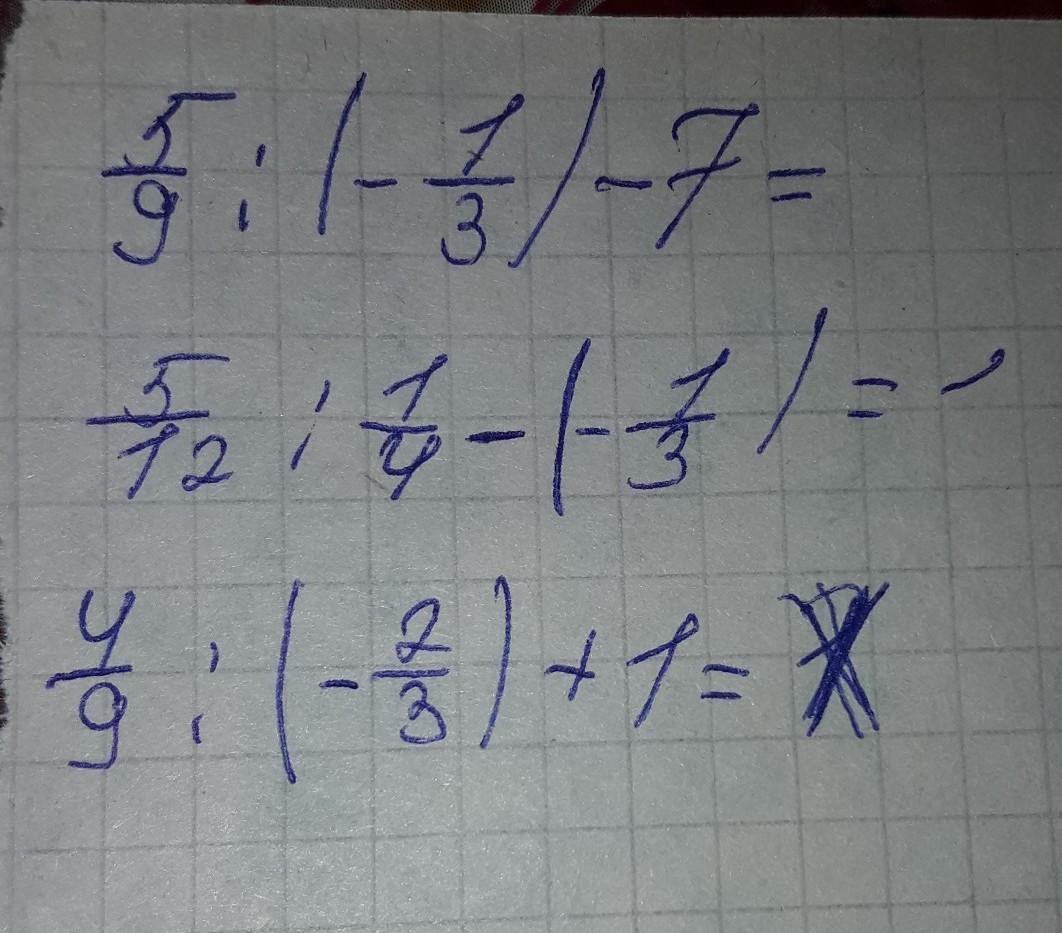 5/9 : (-1/3) - 7 =
5/12 : 1/4 - (-1/3) =
4/9 : (-2/3) + 1 =